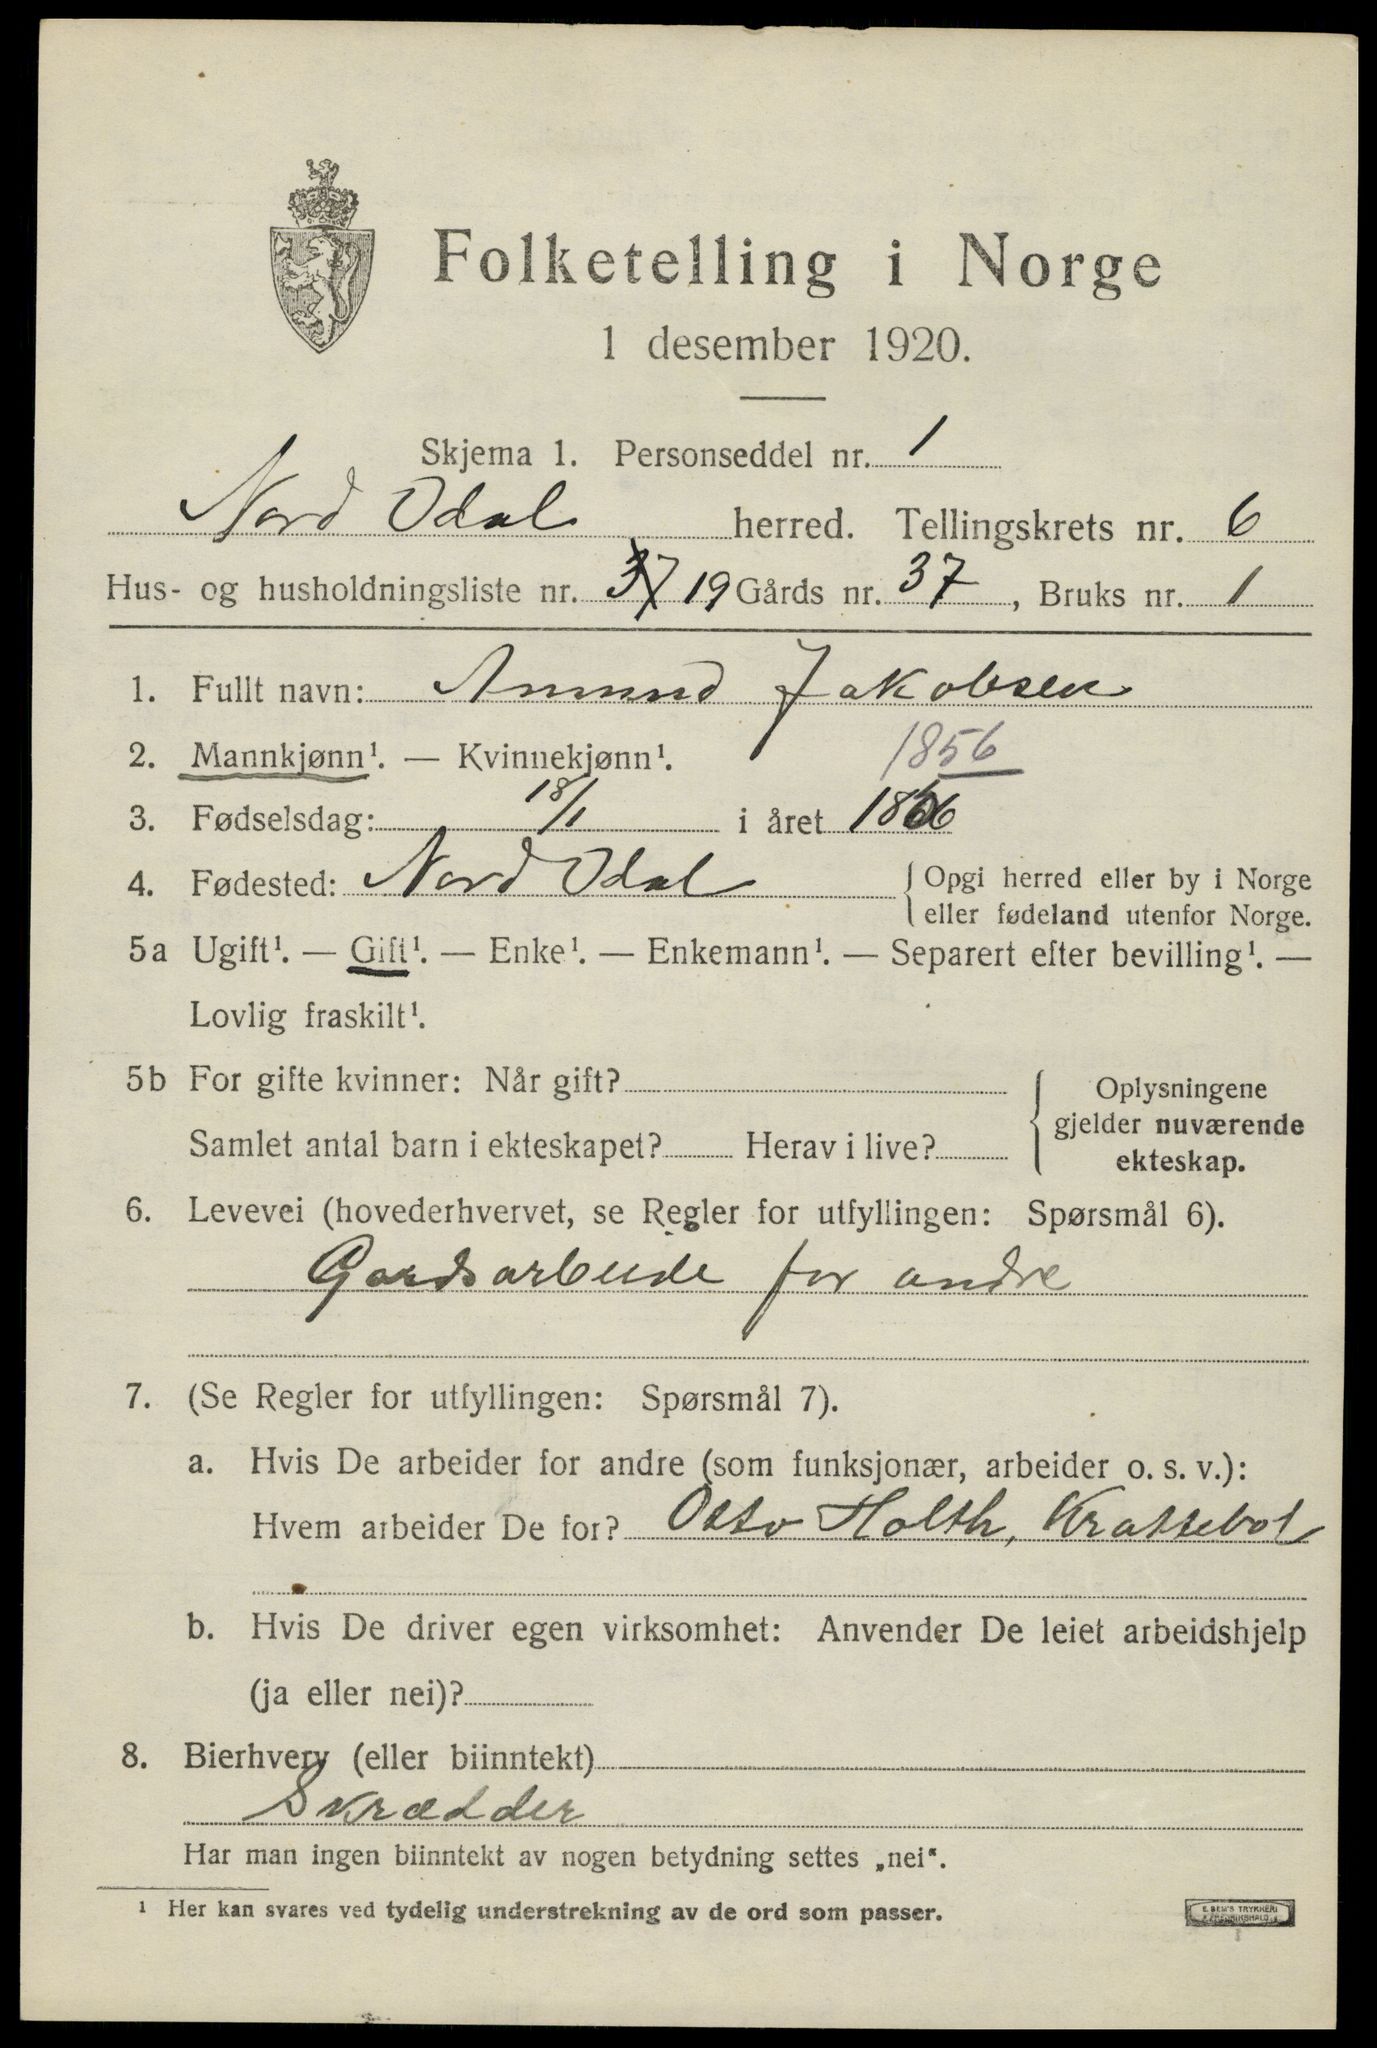 Folketelling i Norge
1 desember 1920.
Skjema 1. Personseddel nr. 1
Nord Odal herred. Tellingskrets nr. 6
Hus- og husholdningsliste nr. 37 19 Gårds nr. 37, Bruks nr. 1
1. Fullt navn: Amund Jakobsen
2. Mannkjønn¹. — Kvinnekjønn¹. 1856
3. Fødselsdag: 18/1 i året 1856
4. Fødested: Nord Odal { Opgi herred eller by i Norge
eller fødeland utenfor Norge.
5a Ugift¹. — Gift¹. — Enke¹. — Enkemann¹. — Separert efter bevilling¹. —
Lovlig fraskilt¹.
5b For gifte kvinner: Når gift?
Samlet antal barn i ekteskapet? Herav i live?
Oplysningene
gjelder nuværende
ekteskap.
6. Levevei (hovederhvervet, se Regler for utfyllingen: Spørsmål 6).
Gardsarbeide for andre
7. (Se Regler for utfyllingen: Spørsmål 7).
a. Hvis De arbeider for andre (som funksjonær, arbeider o. s. v.):
Hvem arbeider De for? Otto Holth, Krattebøl
b. Hvis De driver egen virksomhet: Anvender De leiet arbeidshjelp
(ja eller nei)?
8. Bierhverv (eller biinntekt)
Skrædder
Har man ingen biinntekt av nogen betydning settes „nei“.
¹ Her kan svares ved tydelig understrekning av de ord som passer.
E. SEM'S TRYKKERI
FREDRIKSHALD